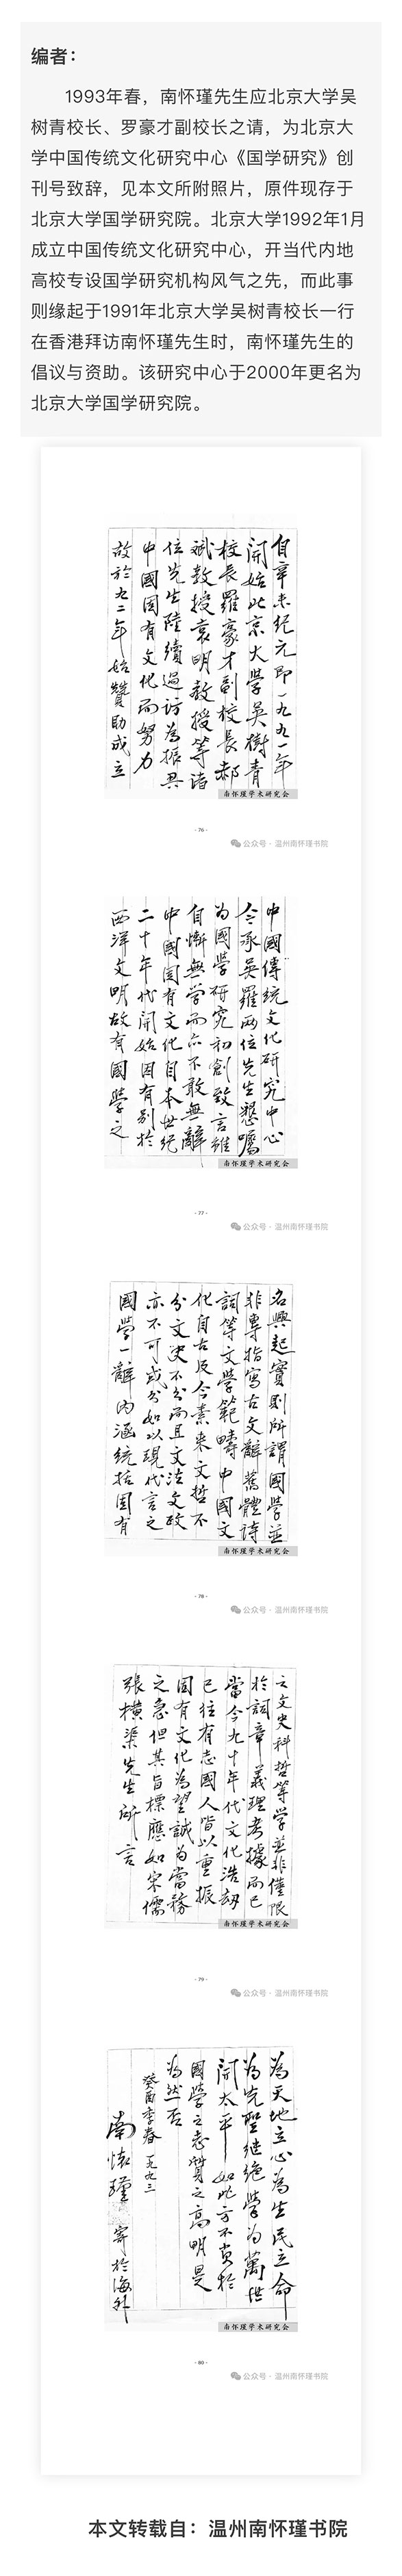 编者：
1993年春，南怀瑾先生应北京大学吴
树青校长、罗豪才副校长之请，为北京大
学中国传统文化研究中心《国学研究》创
刊号致辞，见本文所附照片，原件现存于
北京大学国学研究院。北京大学1992年1月
成立中国传统文化研究中心，开当代内地
高校专设国学研究机构风气之先，而此事
则缘起于1991年北京大学吴树青校长一行
在香港拜访南怀瑾先生时，南怀瑾先生的
倡议与资助。该研究中心于2000年更名为
北京大学国学研究院。
自辛未纪元即一九九一年
開始北京大學吳樹青
校長羅豪才副校長郝
斌教授袁明教授等諸
位先生陸續過訪為振興
中國固有文化而努力
故於九二年始贊助成立
南怀瑾学术研究会
- 76 -
公众号 · 温州南怀瑾书院
中國傳統文化研究中心
今承吳羅两位先生懇囑
为國學研究初創致言雖
自慚無学而亦不敢無辭
中國固有文化自本世纪
二十年代開始因有别於
西洋文明故有國學之
南怀瑾学术研究会
- 77 -
公众号 · 温州南怀瑾书院
名興起實則所謂國學並
非專指寫古文辭舊體詩
詞等文学範疇中國文
化自古及今素来文哲不
分文史不分而且文法文政
亦不可或分如以現代言之
國學一辭内涵統括固有
南怀瑾学术研究会
- 78 -
公众号 · 温州南怀瑾书院
之文史科哲等学並非僅限
於詞章義理考據而已
當今九十年代文化浩劫
已往有志國人皆以重振
固有文化為望誠为當務
之急但其旨標應如宋儒
張横渠先生所言
南怀瑾学术研究会
- 79 -
公众号 · 温州南怀瑾书院
為天地立心為生民立命
为先聖继绝學为萬世
開太平如此方不負於
國學之志質之高明是
为然否
癸酉季春一九九三
南懷瑾寄於海外
南怀瑾学术研究会
- 80 -
公众号 · 温州南怀瑾书院
本文转载自：温州南怀瑾书院